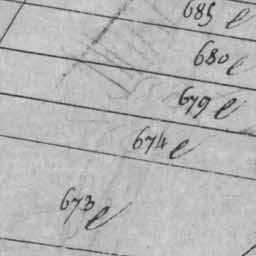 685 e
680 e
679 e
674 e
673 e